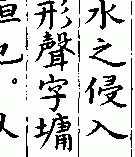 水之侵入
形聲字墉
但也。以